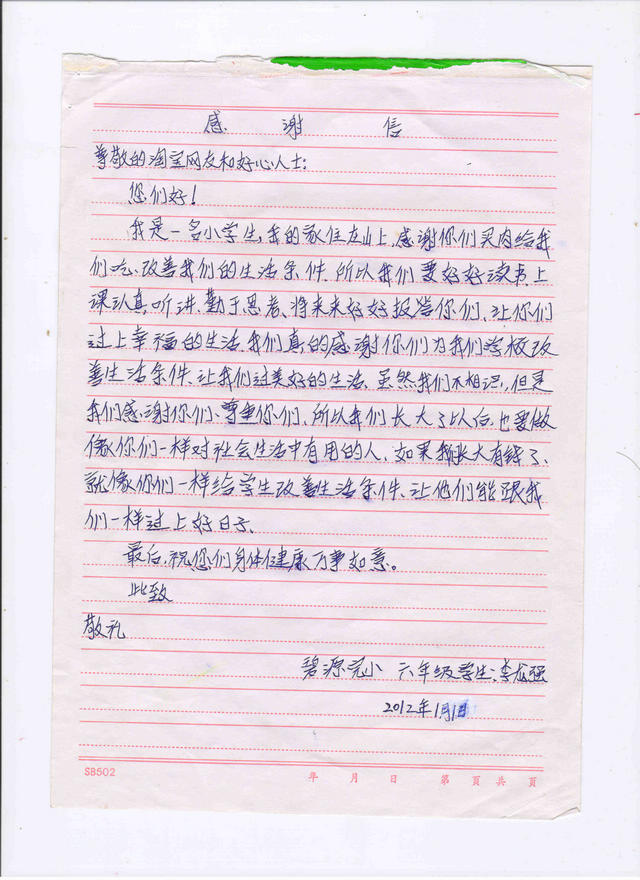 感谢信
尊敬的淘宝网友和好心人士:
您们好!
我是一名小学生,我的家住在山上、感谢你们买肉给我
们吃、改善我们的生活条件、所以我们要好好读书、上
课认真听讲、勤于思考、将来来好好报答你们、让你们
过上幸福的生活、我们真的感谢你们为我们学校改
善生活条件、让我们过美好的生活、虽然我们不相识,但是
我们感谢你们、尊重你们、所以我们长大了以后、也要做
像你们一样对社会生活中有用的人、如果我长大有钱了、
就像你们一样给学生改善生活条件、让他们能跟我
们一样过上好日子、
最后,祝您们身体健康万事如意。
此致
敬礼
碧源完小 六年级学生:李龙强
2012年1月1日
SB502 年 月 日 第 頁 共 頁